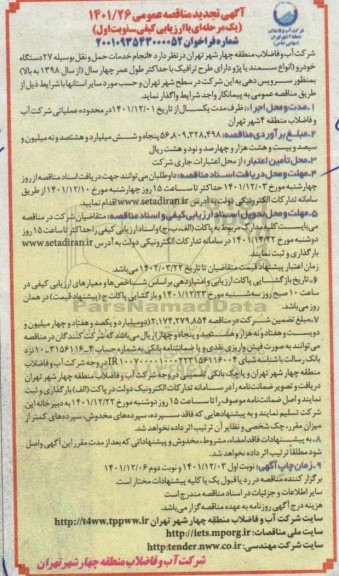 آگهی تجدید مناقصه عمومی ۱۴۰۱/۲۶
(یک مرحله‌ای با ارزیابی کیفی-نوبت اول)
شماره فراخوان ۲۰۰۱۰۹۳۵۴۳۰۰۰۰۵۲
شرکت آب و فاضلاب منطقه چهار شهر تهران در نظر دارد «انجام خدمات حمل و نقل بوسیله ۲۷ دستگاه
خودرو (انواع سمند یا پژو دارای طرح ترافیک با حداکثر طول عمر چهار سال (از سال ۱۳۹۸ به بالا)
بمنظور سرویس دهی به این شرکت در سطح شهر تهران و حسب مورد سایر استانها با شرایط ذیل از
طریق مناقصه عمومی به پیمانکار واجد شرایط واگذار نماید.
۱.مدت و محل اجرا: ظرف مدت یکسال از تاریخ ۱۴۰۱/۱۲/۰۱ در محدوده عملیاتی شرکت آب
و فاضلاب منطقه ۴ شهر تهران
۲.مبلغ برآوردی مناقصه: ۵۶,۸۰۹,۳۲۸,۴۹۸ پنجاه و شش میلیارد و هشتصد و نه میلیون و
سیصد و بیست و هشت هزار و چهارصد و نود و هشت ریال
۳.محل تأمین اعتبار: از محل اعتبارات جاری شرکت
۴.مهلت و محل دریافت اسناد مناقصه: داوطلبان می‌توانند جهت دریافت اسناد مناقصه از روز
چهارشنبه مورخ ۱۴۰۱/۱۲/۰۳ حداکثر تا ساعت ۱۵ روز چهارشنبه مورخ ۱۴۰۱/۱۲/۱۰ از طریق
سامانه تدارکات الکترونیکی دولت به آدرس www.setadiran.ir اقدام نمایید.
۵.مهلت و محل تحویل اسناد ارزیابی کیفی و اسناد مناقصه: متقاضیان شرکت در مناقصه
می‌بایست کلیه مدارک مربوط به پاکات (الف، ب، ج) و اسناد ارزیابی کیفی را حداکثر تا ساعت ۱۵ روز
دوشنبه مورخ ۱۴۰۱/۱۲/۲۲ در سامانه تدارکات الکترونیکی دولت به آدرس www.setadiran.ir
بارگذاری و ثبت نمایند
زمان اعتبار پیشنهاد قیمت متقاضیان تا تاریخ ۱۴۰۲/۰۳/۲۲ می‌باشد.
۶.تاریخ بازگشایی پاکات ارزیابی و امتیازدهی بر اساس شاخص‌ها و معیارهای ارزیابی کیفی در
ساعت ۱۰ صبح روز سه شنبه مورخ ۱۴۰۱/۱۲/۲۳ و بازگشایی پاکات ج (پیشنهاد قیمت) در همان
روز می‌باشد.
۷.مبلغ تضمین شرکت در مناقصه ۲,۱۷۴,۲۷۹,۸۵۴ (دو میلیارد و یکصد و هفتاد و چهار میلیون و
دویست و هفتاد و نه هزار و هشتصد و پنجاه و چهار) ریال می‌باشد که شرکت کنندگان در مناقصه
می‌توانند به صورت فیش واریزی نقدی و یا ضمانتنامه بانکی به شماره حساب
بانک رسالت با شناسه شبای در وجه شرکت آب و فاضلاب
منطقه چهار شهر تهران و یا چک بانکی تضمینی در وجه شرکت آب و فاضلاب منطقه چهار شهر تهران
دریافت و تصویر ضمانت‌نامه را در سامانه تدارکات الکترونیک دولت در پاکت (الف) بارگذاری و ثبت
نمایند و اصل ضمانت‌نامه موصوف را تا ساعت ۱۵ روز دوشنبه مورخ ۱۴۰۱/۱۲/۲۲ به دبیرخانه این
شرکت تسلیم نمایند و به پیشنهادهایی که فاقد سپرده، سپرده‌های مخدوش، سپرده‌های کمتر از
میزان مقرر، چک شخصی و نظایر آن ترتیب اثر داده نخواهد شد.
۸.به پیشنهادات فاقد امضاء، مشروط، مخدوش و پیشنهاداتی که بعد از مدت مقرر این آگهی واصل
شود مطلقا ترتیب اثر داده نخواهد شد.
۹.زمان چاپ آگهی: نوبت اول ۱۴۰۱/۱۲/۰۳ و نوبت دوم ۱۴۰۱/۱۲/۰۶
برگزار کننده مناقصه در رد یا قبول یک یا کلیه پیشنهادات مختار است.
سایر اطلاعات و جزئیات در اسناد مناقصه مندرج است
هزینه درج آگهی روزنامه به عهده مناقصه گزار می‌باشد.
سایت شرکت آب و فاضلاب منطقه چهار شهر تهران http://t4ww.tppww.ir
سایت ملی مناقصات: http://iets.mporg.ir
سایت شرکت مهندسی: http:tender.nww.co.ir
شرکت آب و فاضلاب منطقه چهار شهر تهران
ParsNamadData